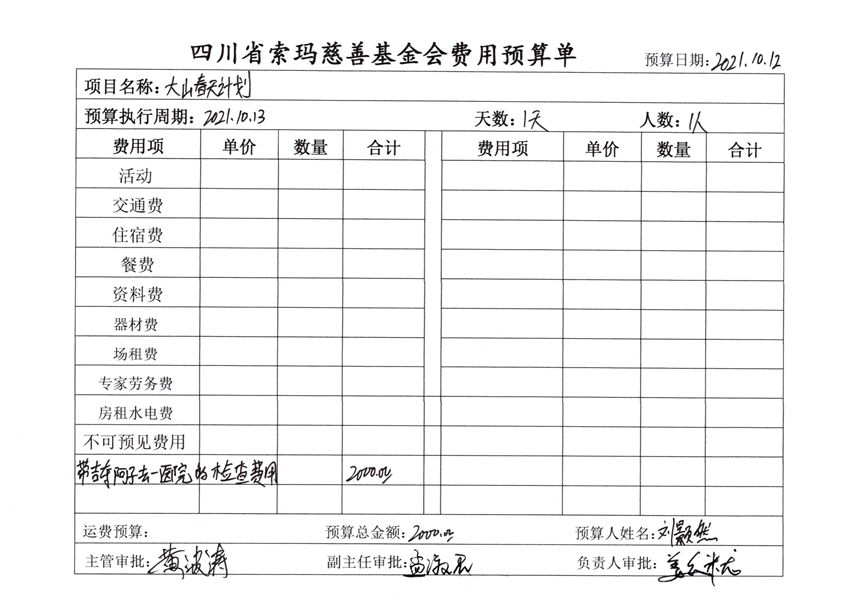 四川省索玛慈善基金会费用预算单
预算日期:2021.10.12
项目名称:大山春天计划
预算执行周期:2021.10.13 天数:1天 人数:1人
费用项 单价 数量 合计 费用项 单价 数量 合计
活动
交通费
住宿费
餐费
资料费
器材费
场租费
专家劳务费
房租水电费
不可预见费用
带吉 阿子去一医院的检查费用 2000.00
运费预算: 预算总金额:2000.00 预算人姓名:刘颢然
主管审批:黄波涛 副主任审批:孟 君 负责人审批: